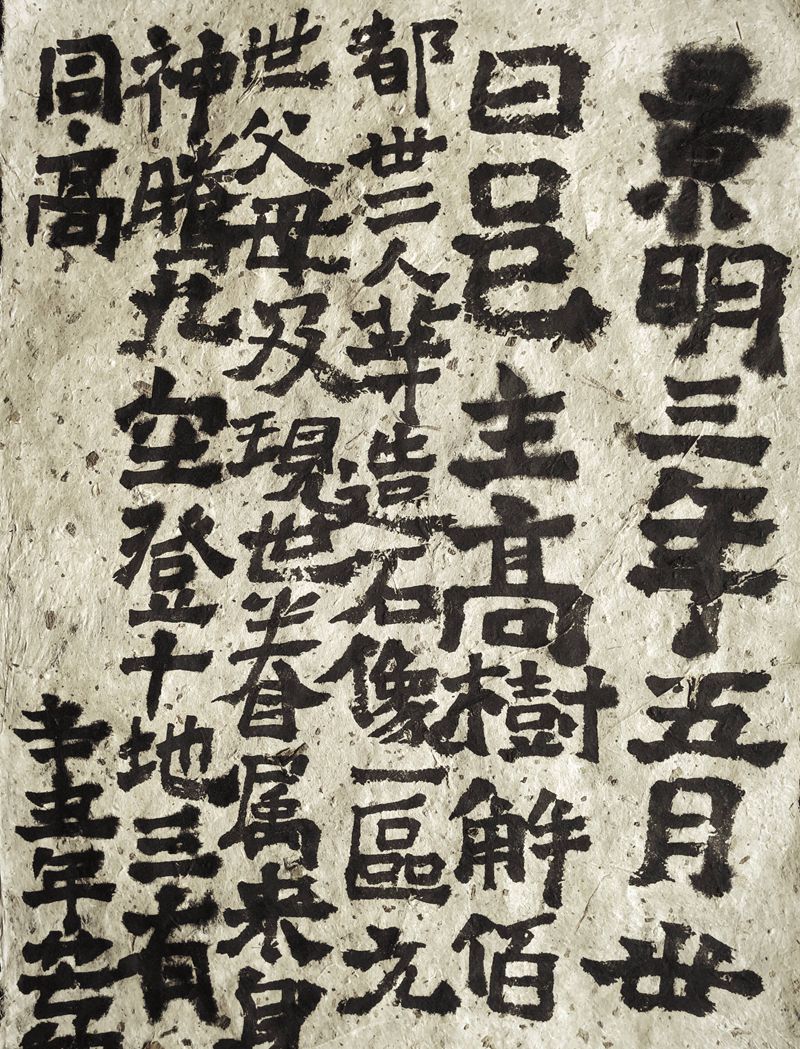 景明三年五月卅
日邑主高樹解佰
都卅二人等造石像一區元
世父母及現世眷属来身
神騰九空登十地三有
同高
辛丑年